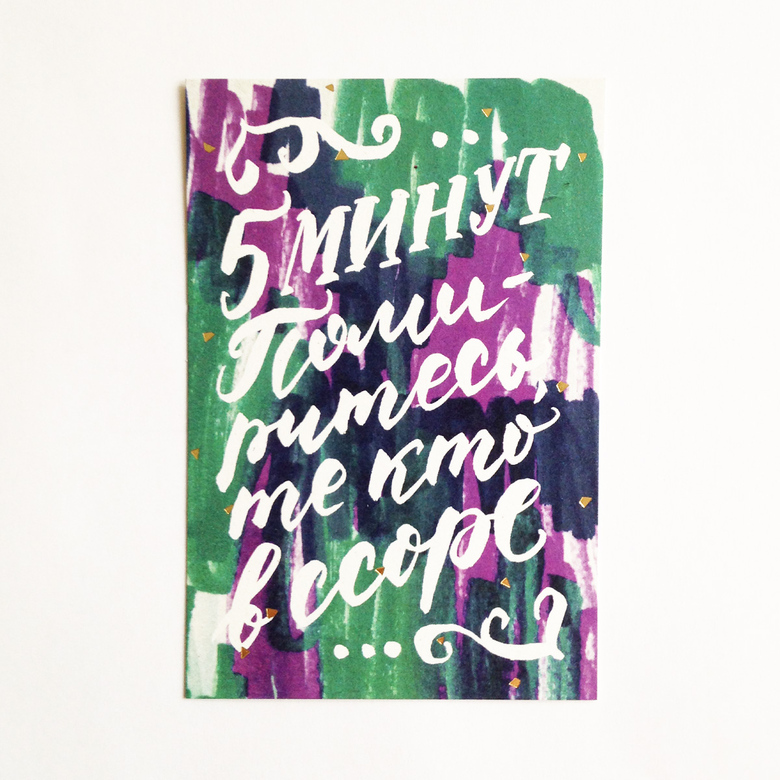 ...
5 минут
Поми-
ритесь,
те кто
в ссоре
...